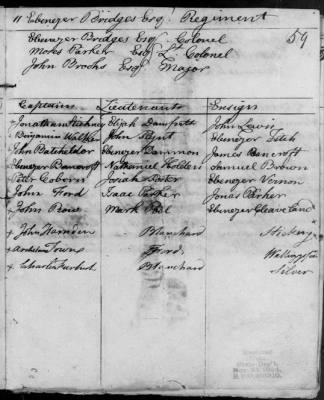 11 Ebenezer Bridges Esqr Regiment
59
Ebenezer Bridges Esqr Colonel
Moses Parker Esqr Lt Colonel
John Brooks Esqr Major
Captains Lieutenants Ensign
Jonathan Elijah John Lewis
Benjamin Walker John Flint Ebenezer Fitch
John Batcheldor Ebenezer Dammon James Bancroft
Ebenezer Bancroft Nathaniel Holden Samuel Brown
Peter Coborn Josiah Foster Ebenezer Vernon
John Ford Isaac Parker Jonas Parker
John Row Mark Pool Ebenezer Cleaveland
x John Harnden Blanchard Stickney
x Archelaus Towns Ford Wallingsford
x Charles Furbush Blanchard Silver